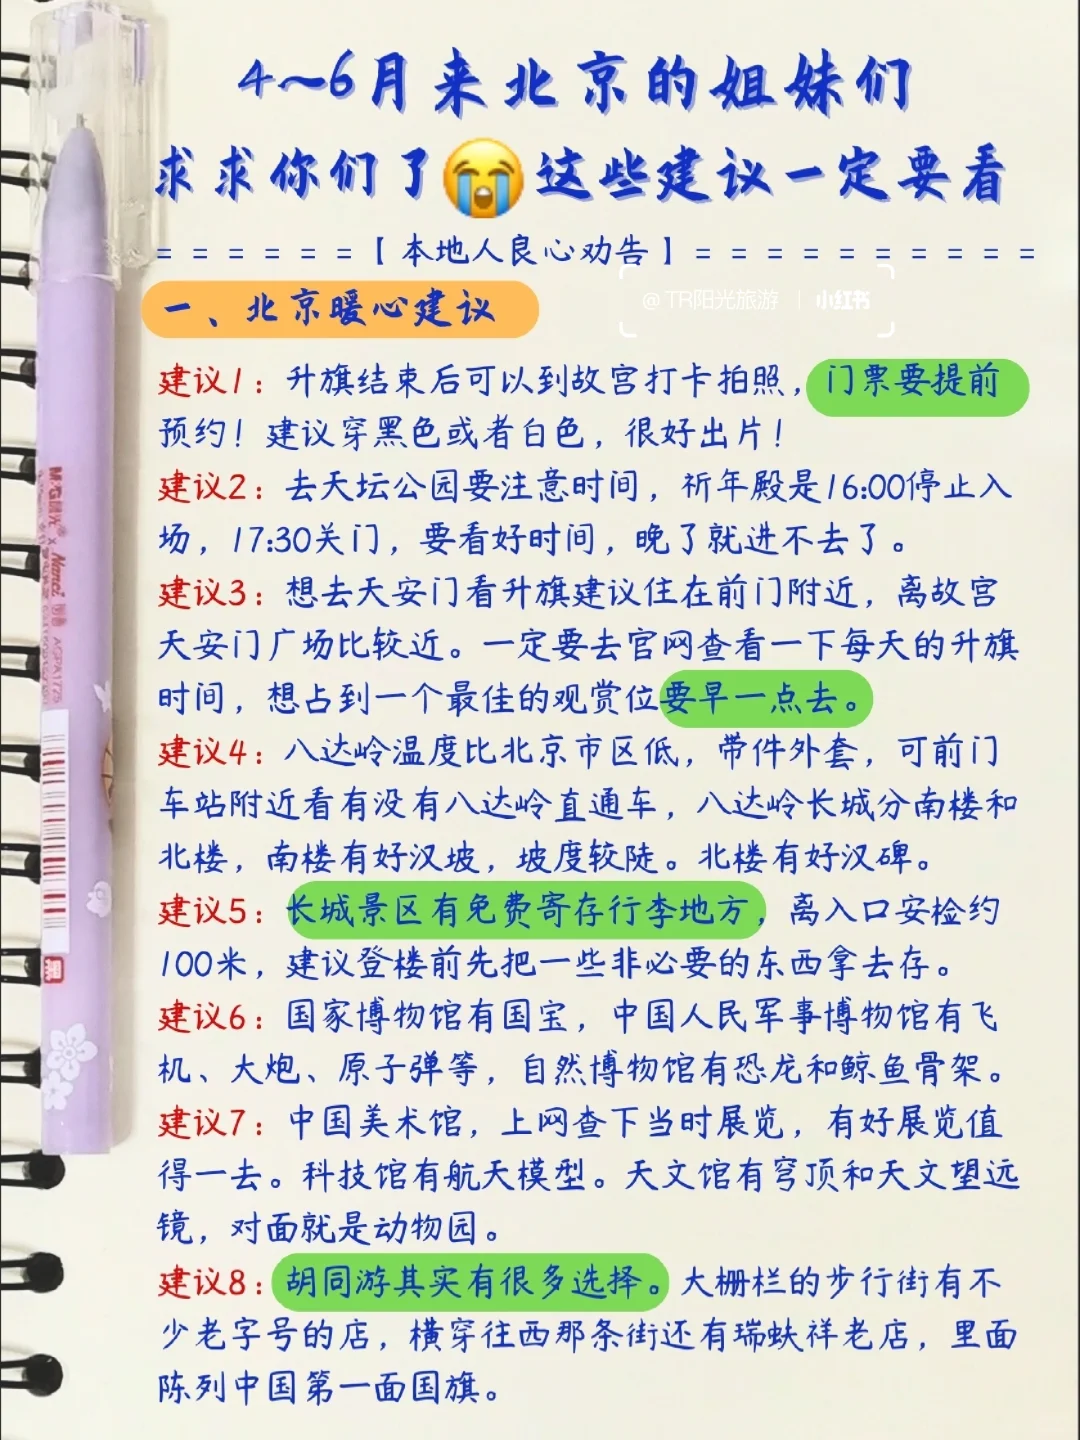 4~6月来北京的姐妹们
求求你们了😭这些建议一定要看
======【本地人良心劝告】==========
@TR阳光旅游 | 小红书
一、北京暖心建议
建议1：升旗结束后可以到故宫打卡拍照，门票要提前
预约！建议穿黑色或者白色，很好出片！
建议2：去天坛公园要注意时间，祈年殿是16:00停止入
场，17:30关门，要看好时间，晚了就进不去了。
建议3：想去天安门看升旗建议住在前门附近，离故宫
天安门广场比较近。一定要去官网查看一下每天的升旗
时间，想占到一个最佳的观赏位要早一点去。
建议4：八达岭温度比北京市区低，带件外套，可前门
车站附近看有没有八达岭直通车，八达岭长城分南楼和
北楼，南楼有好汉坡，坡度较陡。北楼有好汉碑。
建议5：长城景区有免费寄存行李地方，离入口安检约
100米，建议登楼前先把一些非必要的东西拿去存。
建议6：国家博物馆有国宝，中国人民军事博物馆有飞
机、大炮、原子弹等，自然博物馆有恐龙和鲸鱼骨架。
建议7：中国美术馆，上网查下当时展览，有好展览值
得一去。科技馆有航天模型。天文馆有穹顶和天文望远
镜，对面就是动物园。
建议8：胡同游其实有很多选择。大栅栏的步行街有不
少老字号的店，横穿往西那条街还有瑞蚨祥老店，里面
陈列中国第一面国旗。
M&G晨光® x Nanci
AGPA1725